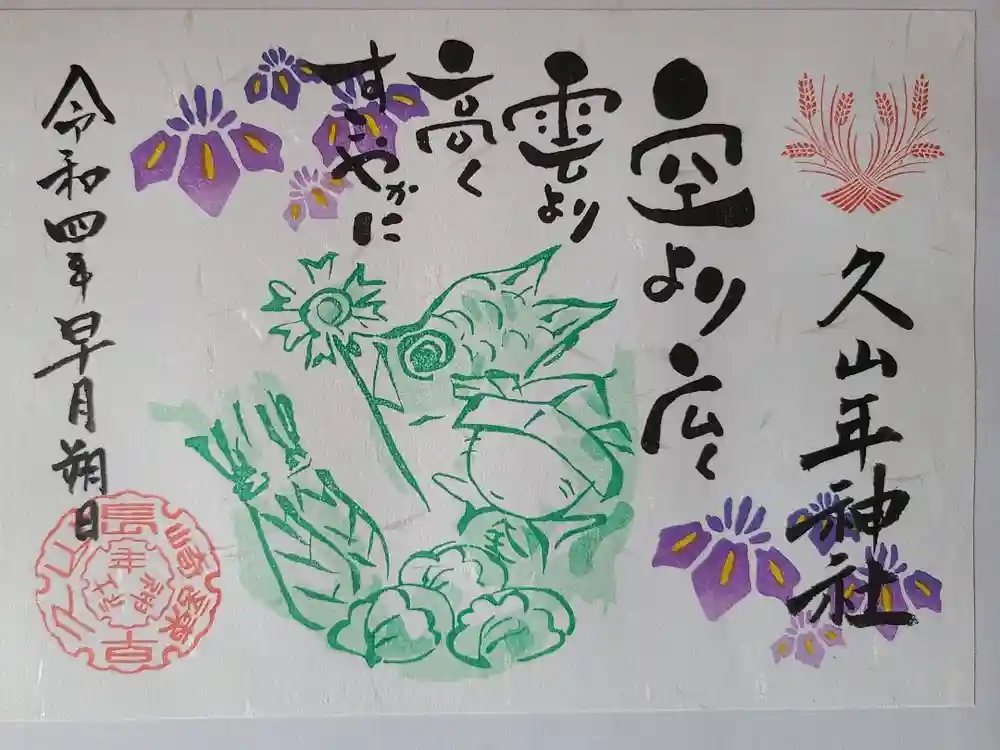 久山年神社
空より広く
雲より
高く
すこやかに
令和四年早月朔日
長崎県
年神社